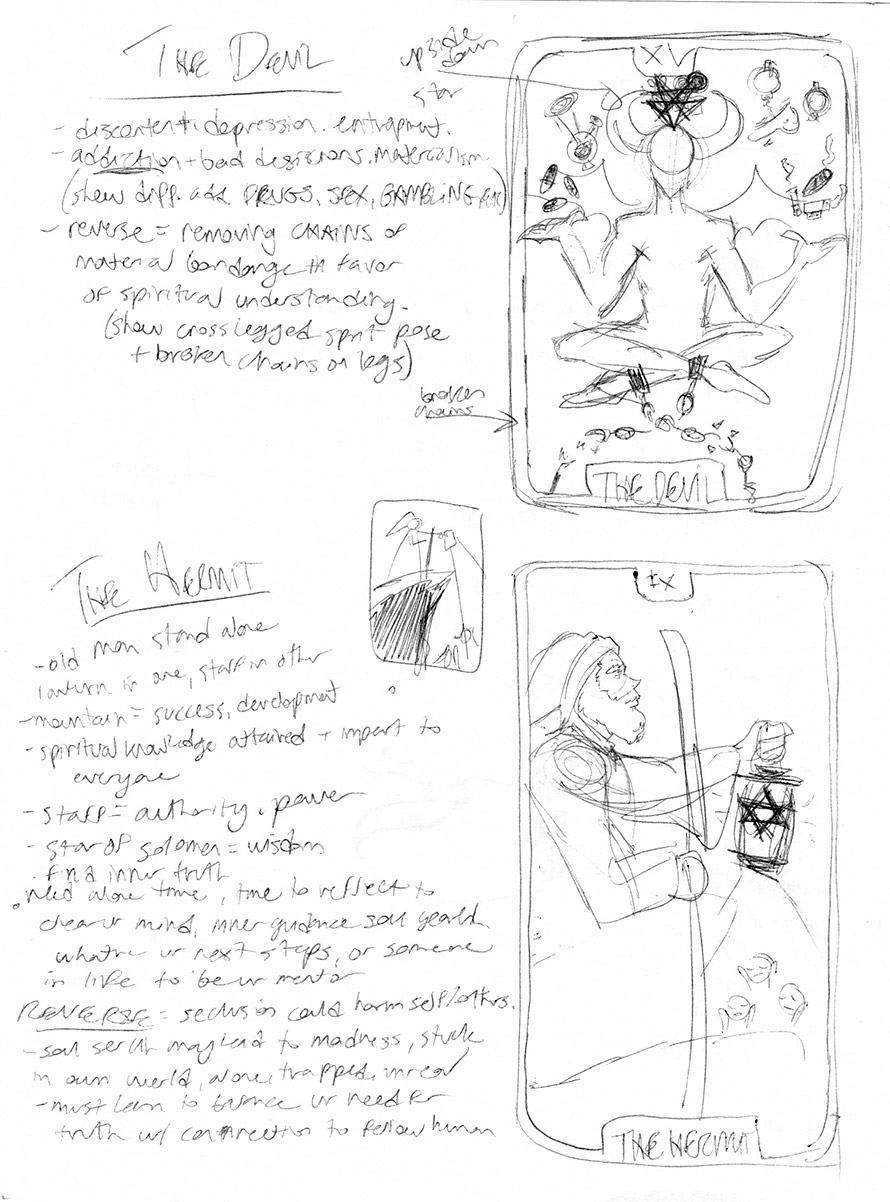 THE DEVIL
upside
down
star
XV
- discontent. depression. entrapment.
- addiction + bad desicions. materialism
(show diff. add. DRUGS, SEX, GAMBLING, etc)
- reverse = removing CHAINS of
material bondange in favor
of spiritual understanding.
(show cross legged sprit pose
+ broken chains on legs)
broken
chains
THE DEVIL
THE HERMIT
IX
- old man stand alone
lantern in one, staff in other
- mountain = success, development
- spiritual knowledge attained + impart to
everyone
- staff = authority. power
- star of solomon = wisdom
. find inner truth
. need alone time, time to reflect to
clear ur mind, inner guidance soul
ur next steps, or someone
in life to be ur mentor
REVERSE = seclusion could harm self/others.
- soul may lead to madness, stuck
in own world, alone, trapped, unreal
- must learn to balance ur need for
truth w/ connection to fellow human
THE HERMIT